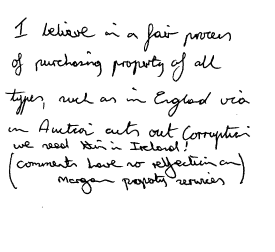 I believe in a fair process
of purchasing property of all
types, such as in England via
an Auction cuts out Corruption
we need this in Ireland!
(comments have no reflection on
Morgan property services)